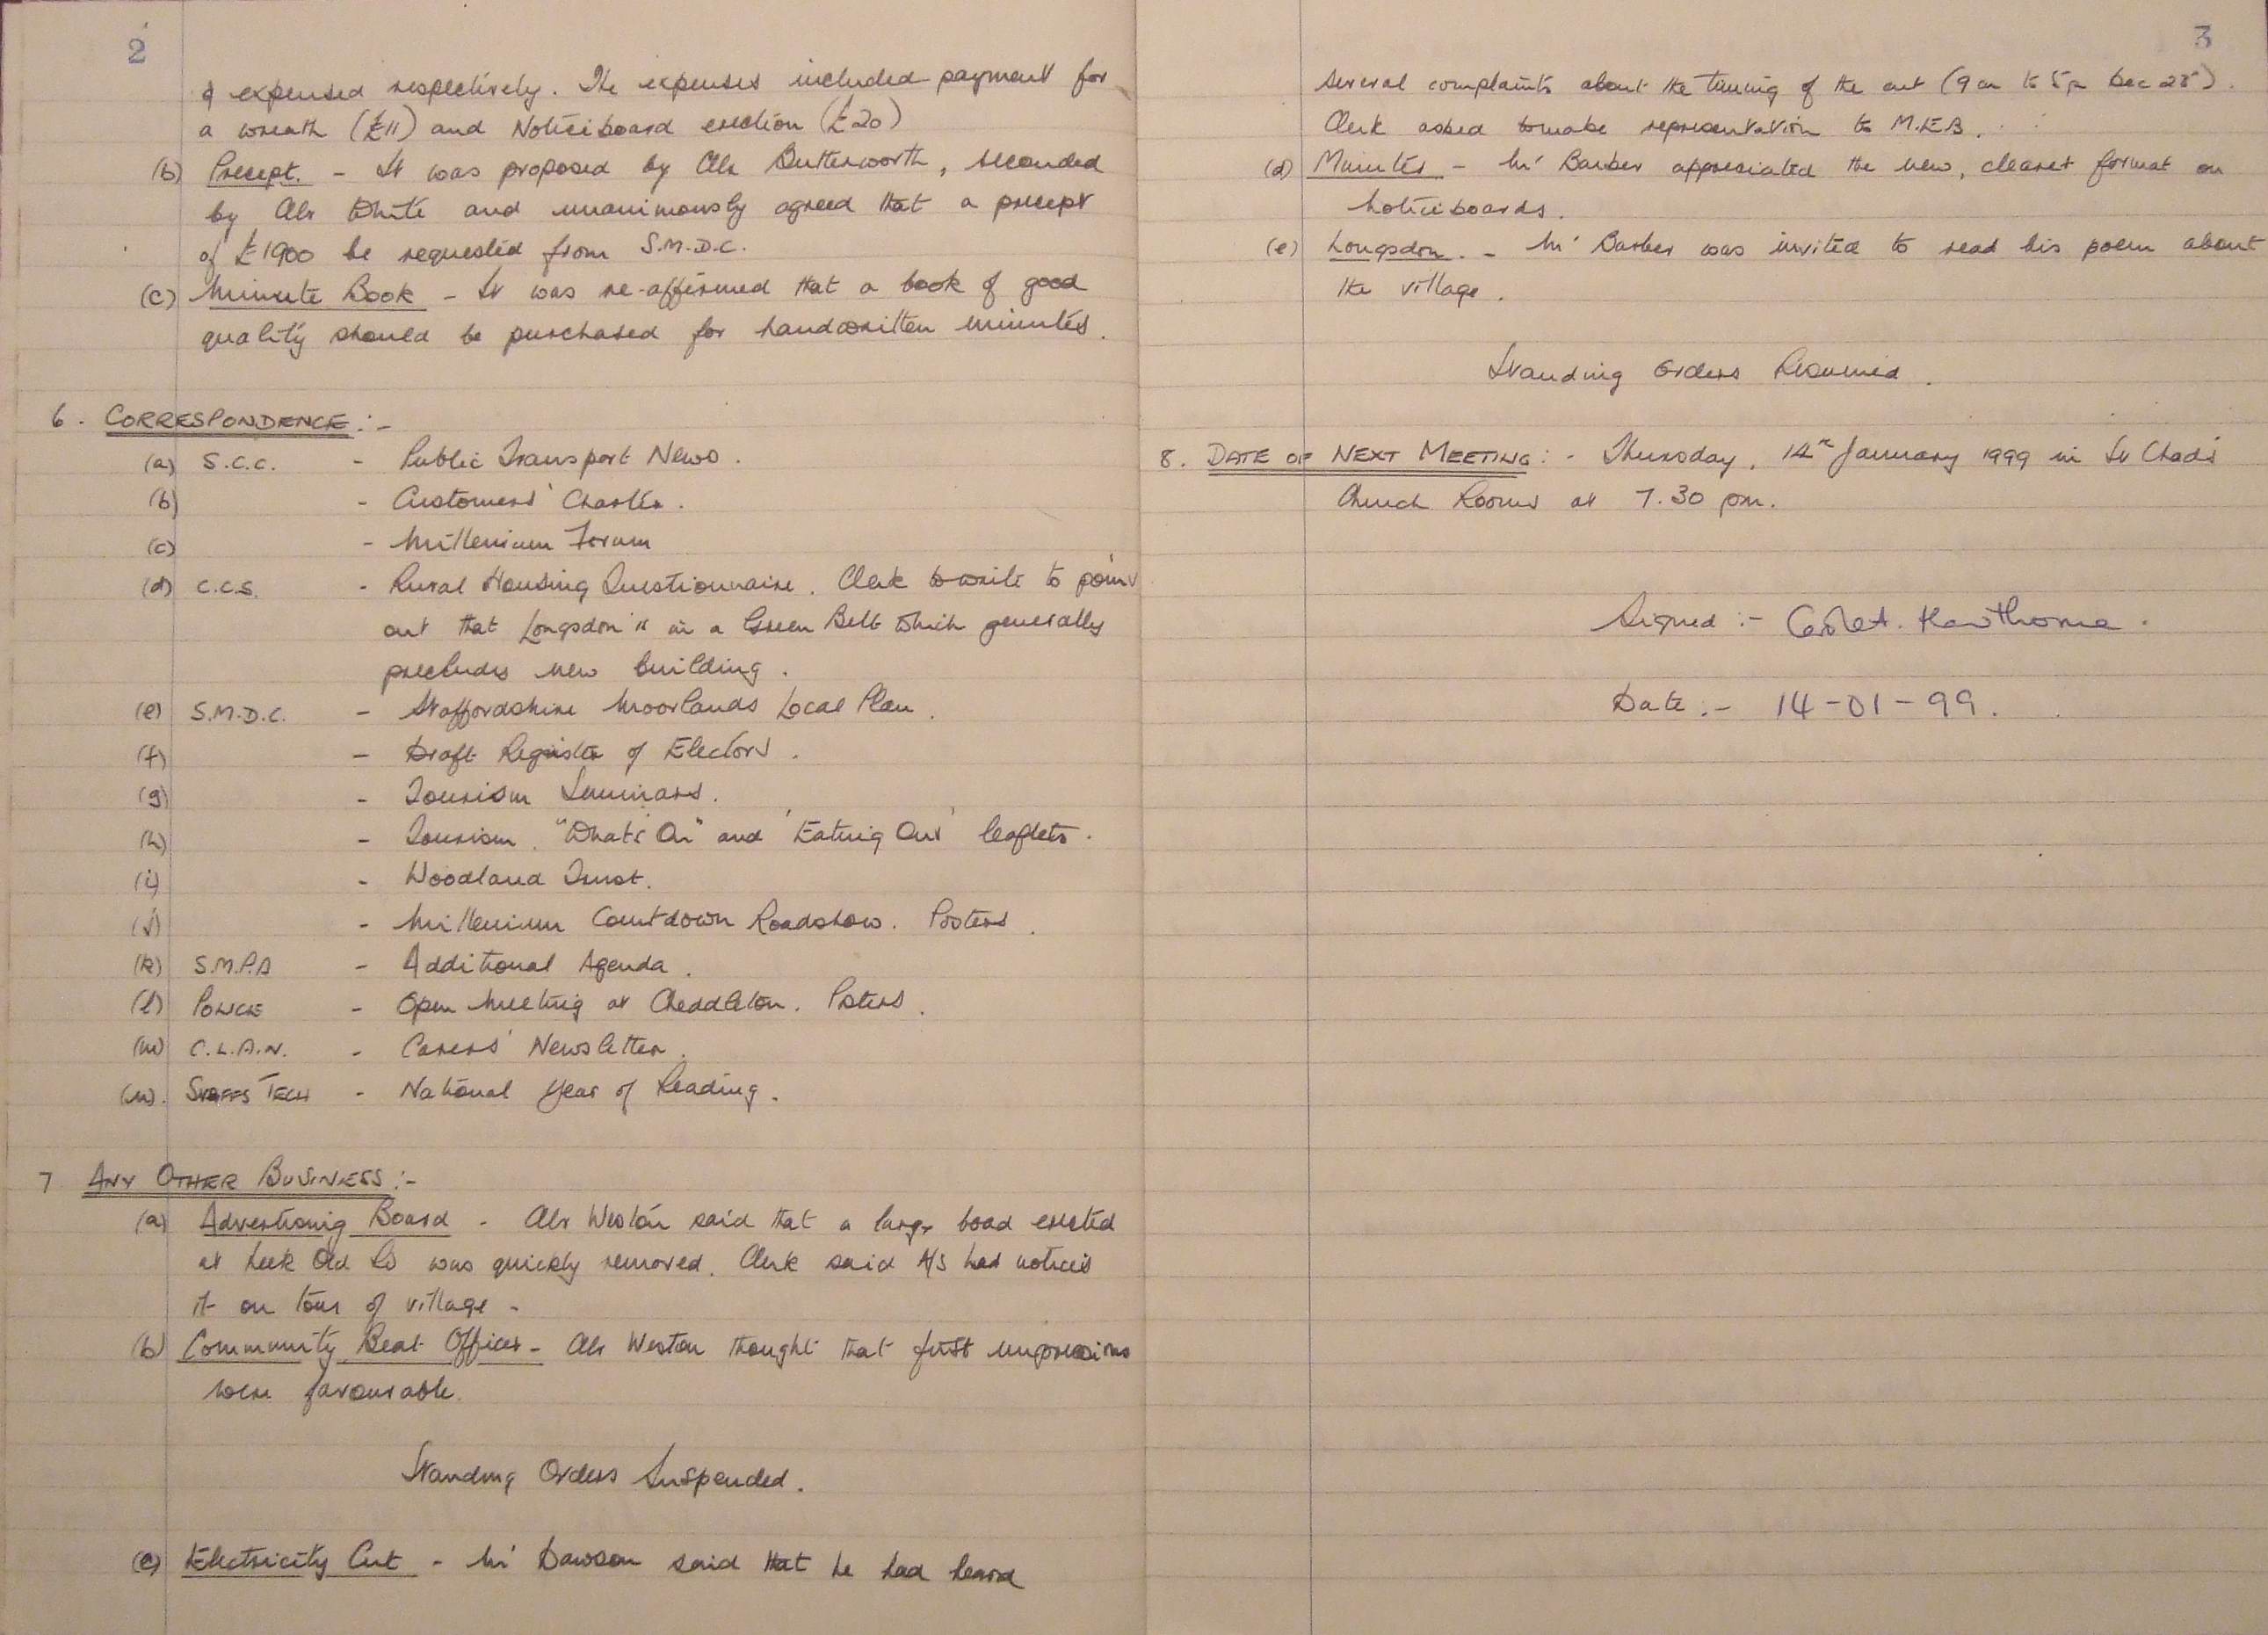 2
& expensed respectively. The expenses included payment for
a wreath (£11) and Noticeboard erection (£20)
(b) Precept. - It was proposed by Cllr Butterworth, seconded
by Cllr White and unanimously agreed that a precept
of £1900 be requested from S.M.D.C.
(c) Minute Book - It was re-affirmed that a book of good
quality should be purchased for handwritten minutes.
6. CORRESPONDENCE:-
(a) S.C.C. - Public Transport News.
(b) - Customers' Charter.
(c) - Millenium Forum
(d) C.C.S. - Rural Housing Questionnaire. Clerk to write to point
out that Longsdon is in a Green Belt which generally
precludes new building.
(e) S.M.D.C. - Staffordshire Moorlands Local Plan.
(f) - Draft Register of Electors.
(g) - Tourism Seminars.
(h) - Tourism. "What's On" and 'Eating Out' leaflets.
(i) - Woodland Trust.
(j) - Millenium Countdown Roadshow. Posters.
(k) S.M.P.A - Additional Agenda.
(l) POLICE - Open Meeting at Cheddleton. Posters.
(m) C.L.A.N. - Carers' Newsletter.
(n). STAFFS TECH - National Year of Reading.
7 ANY OTHER BUSINESS:-
(a) Advertising Board - Cllr Weston said that a large board erected
at Leek Old Rd was quickly removed. Clerk said had noticed
it on tour of village -
(b) Community Beat Officer - Cllr Weston thought that first impressions
were favourable.
Standing Orders Suspended.
(c) Electricity Cut - Mr Dawson said that he had heard
3
several complaints about the timing of the cut (9am to 5pm Dec 28).
Clerk asked to make representation to M.E.B.
(d) Minutes - Mr Barber appreciated the new, clearer format on
noticeboards.
(e) Longsdon. - Mr Barber was invited to read his poem about
the village.
Standing Orders Resumed.
8. DATE OF NEXT MEETING:- Thursday, 14th January 1999 in St Chad's
Church Rooms at 7.30 pm.
Signed:- Hawthorne.
Date:- 14-01-99.